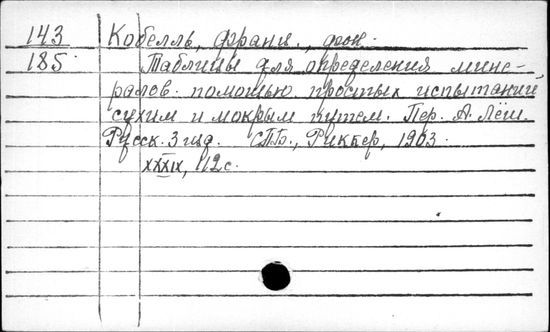 143 Кобелль, Франц, фон.
185 Таблицы для определения мине-
ралов помощью простых испытаний
сухим и мокрым путем. Пер. А. Лёш.
Русск. 3 изд. СПБ., Риккер, 1903.
XXXIX, 112 с.